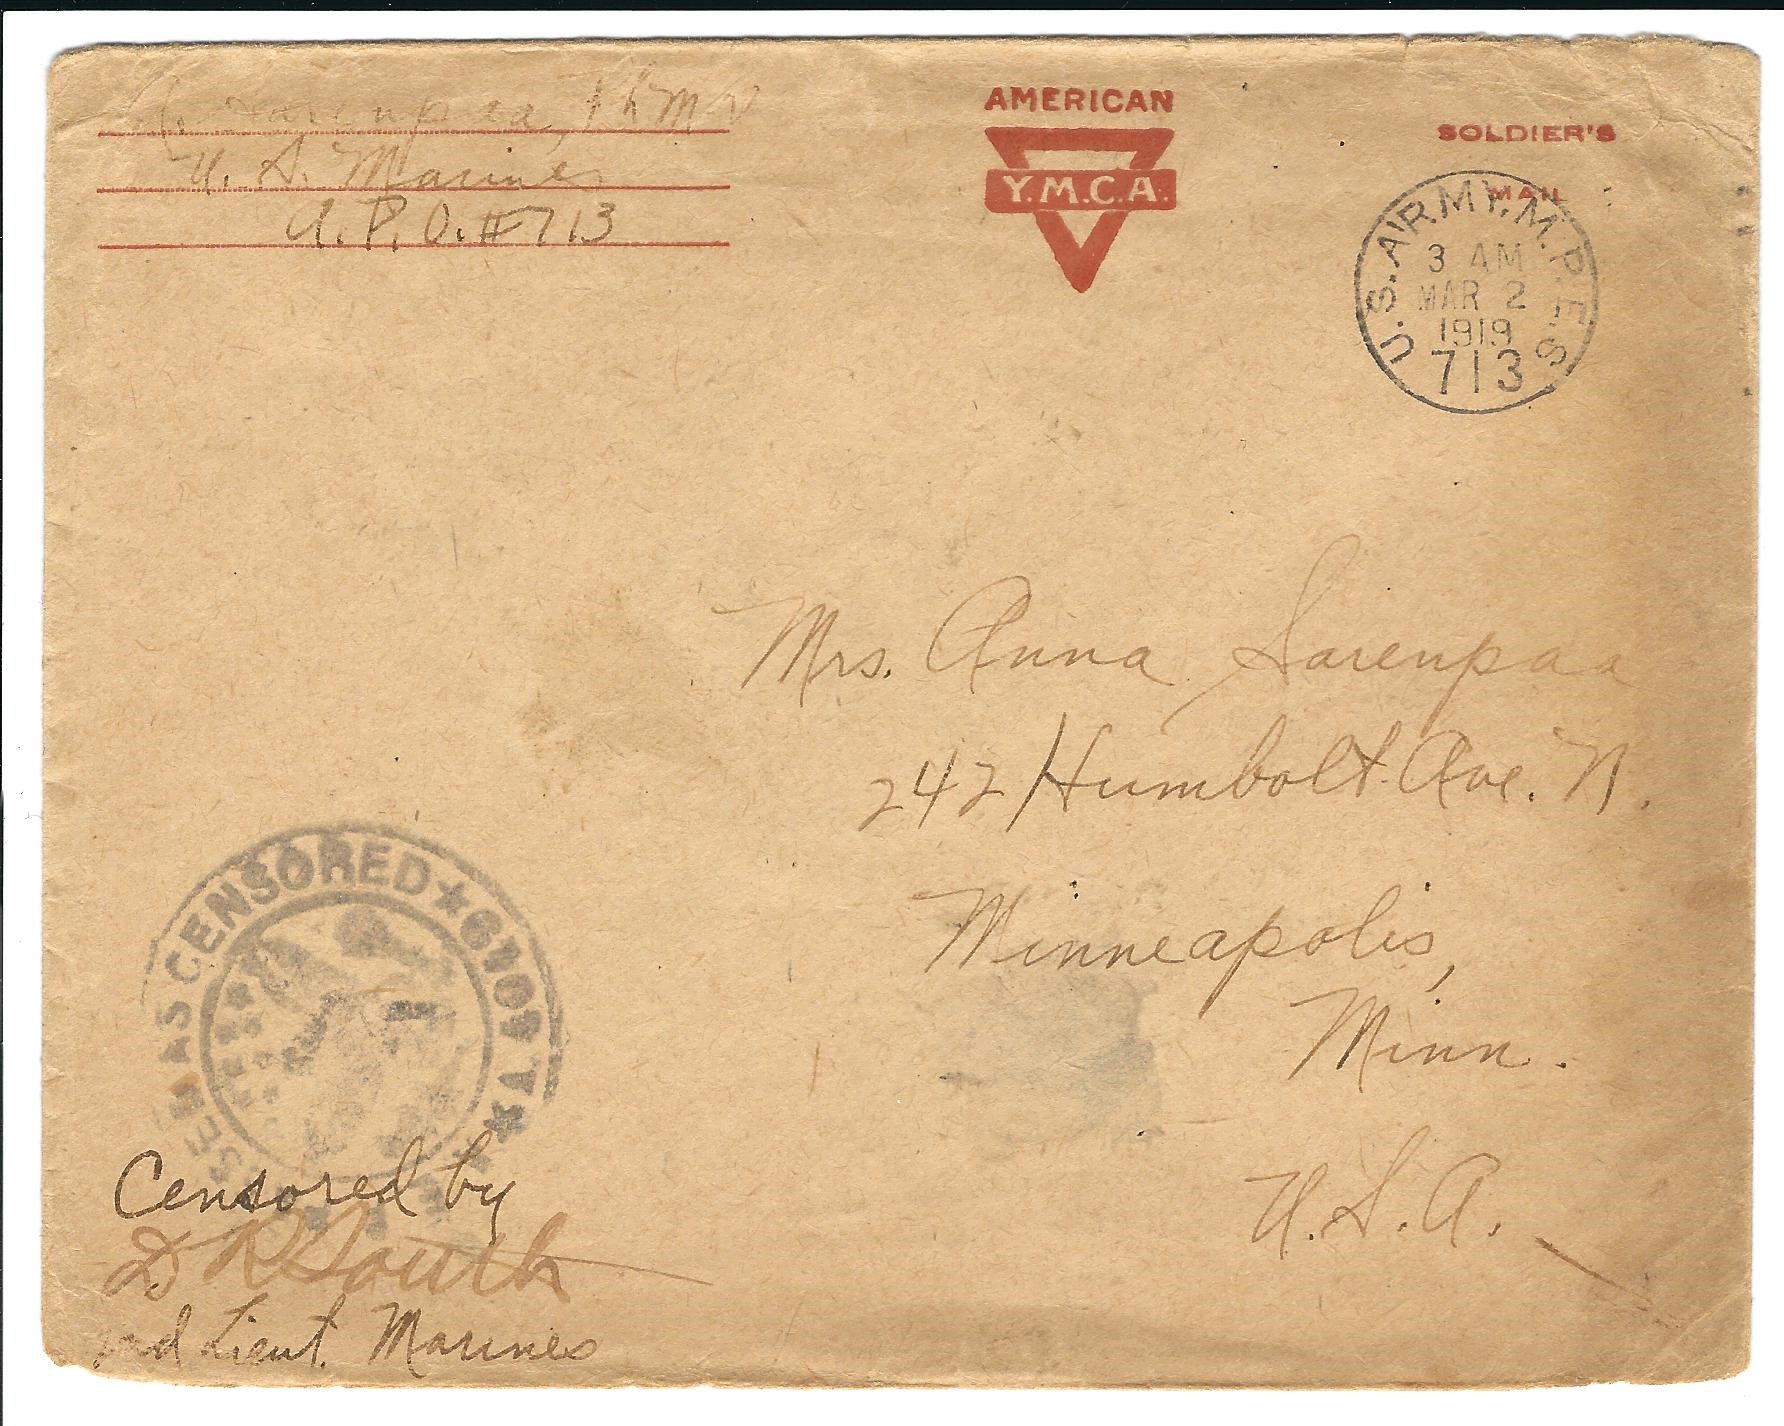 Sarenpaa, PhM
U. S. Marines
A. P. O. #713
AMERICAN
Y.M.C.A.
SOLDIER'S
MAIL
U.S. ARMY. M.P.E.S.
3 AM
MAR 2
1919
713
Mrs. Anna Sarenpaa
242 Humbolt Ave. N.
Minneapolis,
Minn.
U. S. A.
AS CENSORED
Censored by
D R South
2nd Lieut. Marines